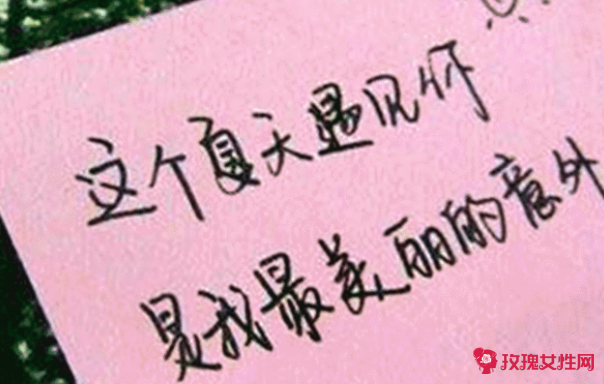 这个夏天遇见你
是我最美丽的意外
玫瑰女性网